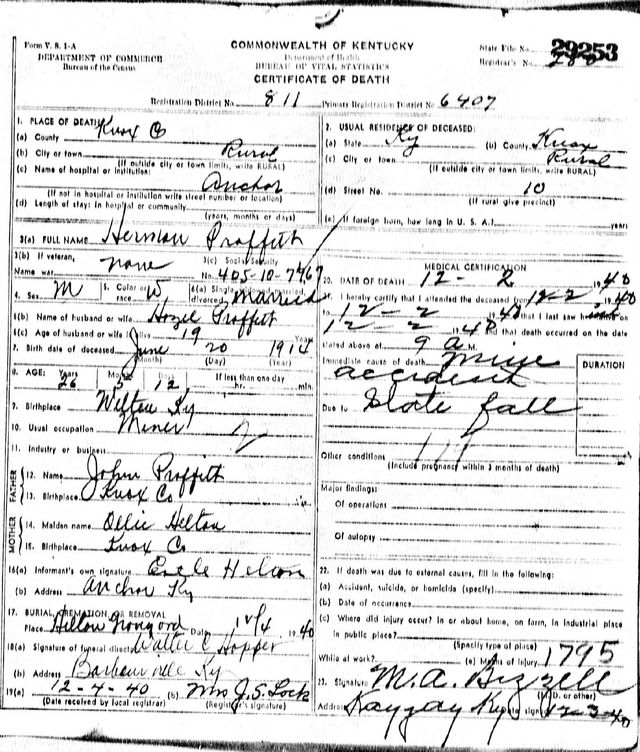 Form V. S. 1-A
DEPARTMENT OF COMMERCE
Bureau of the Census
COMMONWEALTH OF KENTUCKY
Department of Health
BUREAU OF VITAL STATISTICS
CERTIFICATE OF DEATH
State File No. 29253
Registrar's No.
Registration District No. 811
Primary Registration District No. 6407
1. PLACE OF DEATH
(a) County Knox Co
(b) City or town Rural
(If outside city or town limits, write RURAL)
(c) Name of hospital or institution:
Anchor
(If not in hospital or institution write street number or location)
(d) Length of stay: In hospital or community
(years, months or days)
2. USUAL RESIDENCE OF DECEASED:
(a) State Ky (b) County Knox
(c) City or town Rural
(If outside city or town limits, write RURAL)
(d) Street No. 10
(If rural give precinct)
(e) If foreign born, how long in U. S. A.? years
3(a) FULL NAME Herman Proffitt
3(b) If veteran, Name war none
3(c) Social Security No. 405-10-7767
4. Sex M 5. Color or race W 6(a) Single, widowed, married, divorced Married
6(b) Name of husband or wife Hazel Proffitt
6(c) Age of husband or wife if alive 19 Years
7. Birth date of deceased June 20 1914
(Month) (Day) (Year)
8. AGE: Years 26 Months 5 Days 12 If less than one day hr. min.
9. Birthplace Wilton Ky
10. Usual occupation Miner
11. Industry or business
FATHER
12. Name John Proffitt
13. Birthplace Knox Co
MOTHER
14. Maiden name Ollie Helton
15. Birthplace Knox Co
16(a) Informant's own signature Helton
(b) Address Anchor Ky
17. BURIAL, CREMATION, OR REMOVAL
Place Helton Date 12/4 1940
18(a) Signature of funeral director Walter C Hopper
(b) Address Barbourville Ky
19(a) 12-4-40 (b) Mrs J. S. Lock
(Date received by local registrar) (Registrar's signature)
MEDICAL CERTIFICATION
20. DATE OF DEATH 12-2 1940
21. I hereby certify that I attended the deceased from 12-2 1940
to 12-2 1940 that I last saw
12-2 1940 and that death occurred on the date
stated above at 9 a M.
Immediate cause of death Mine
accident
Due to Slate fall
DURATION
Other conditions
(Include pregnancy within 3 months of death)
Major findings:
Of operations
Of autopsy
22. If death was due to external causes, fill in the following:
(a) Accident, suicide, or homicide (specify)
(b) Date of occurrence
(c) Where did injury occur? In or about home, on farm, in industrial place
in public place?
(Specify type of place)
While at work? (e) Means of injury 1795
23. Signature M. A. Bizzell
(M.D. or other)
Address Kayjay Ky Date signed 12-3-40